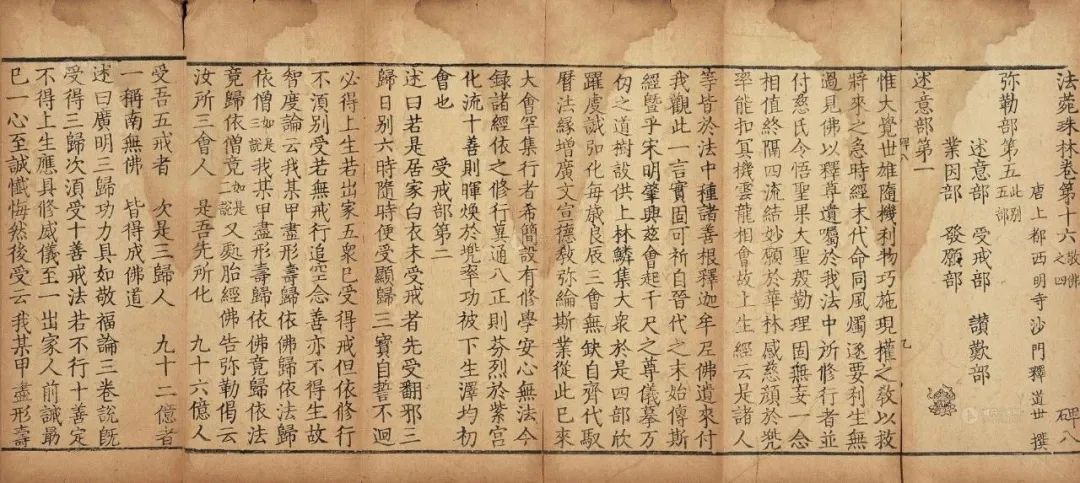 法苑珠林卷第十六 敬佛之四 碑八
唐上都西明寺沙門釋道世 撰
弥勒部第五 此別五部
述意部 受戒部 讃歎部
業因部 發願部
述意部第一
惟大覺世雄隨機利物巧施現權之教以救
將來之急時經末代命同風燭逐要利生無
過見佛以釋尊遺囑於我法中所修行者並
付慈氏令悟聖果大聖殷勤理固無妄一念
相值終隔四流結妙願於華林感慈顔於兠
率能扣冥機雲龍相會故上生經云是諸人
等皆於法中種諸善根釋迦牟尼佛遣來付
我觀此一言實固可祈自晉代之末始傳斯
經暨乎宋明肇興兹會起千尺之尊儀摹万
仞之道樹設供上林鱗集大衆於是四部欣
躍虔誠弘化每歲良辰三會無缺自齊代馭
曆法緣增廣文宣德教弥綸斯業從此已來
大會罕集行者希簡設有修學安心無法今
録諸經依之修行冀通八正則芬烈於紫宮
化流十善則暉煥於兠率功被下生澤均初
會也 受戒部第二
述曰若是居家白衣未受戒者先受翻邪三
歸日別六時隨時便受顯歸三寳自誓不迴
必得上生若出家五衆已受得戒但依修行
不湏別受若無戒行追空念善亦不得生故
智度論云我某甲盡形壽歸依佛歸依法歸
依僧如是三說我某甲盡形壽歸依佛竟歸依法
竟歸依僧竟如是二說又䖏胎經佛告弥勒偈云
汝所三會人 是吾先所化 九十六億人
受吾五戒者 次是三歸人 九十二億者
一稱南無佛 皆得成佛道
述曰廣明三歸功力具如敬福論三卷說旣
受得三歸次湏受十善戒法若不行十善定
不得上生應具修威儀至一出家人前誠勗
已一心至誠懺悔然後受云我某甲盡形壽